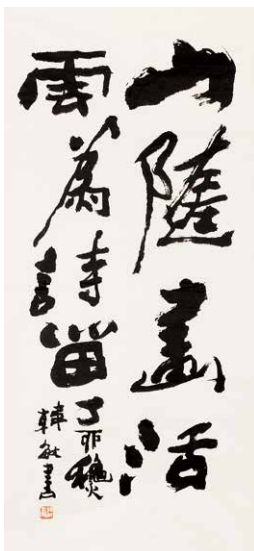 山隨畫活
雲為詩留
丁卯龝
韓敏書